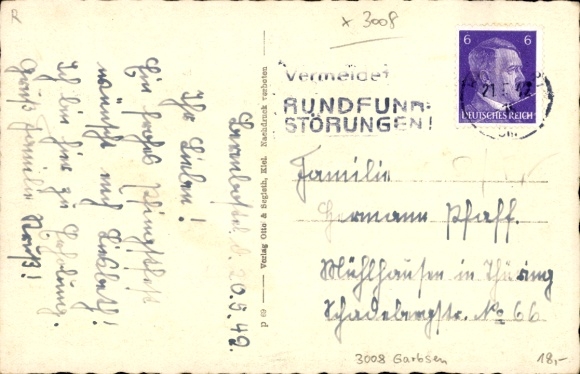 R
x 3008
Vermeidet
RUNDFUNK-
STÖRUNGEN!
6 6
DEUTSCHES REICH
21.
42
d. 20.5.42.
Ihr Lieben!
Ein frohes Pfingstfest
wünscht euch Lisbeth!
Ich bin hier zu Erholung.
Gruß Familie
P 69 — Verlag Otto & Segleth, Kiel. Nachdruck verboten
Familie
Hermann Pfaff.
Mühlhausen in Thüring
Schadebergstr. No 66
3008 Garbsen
18,-